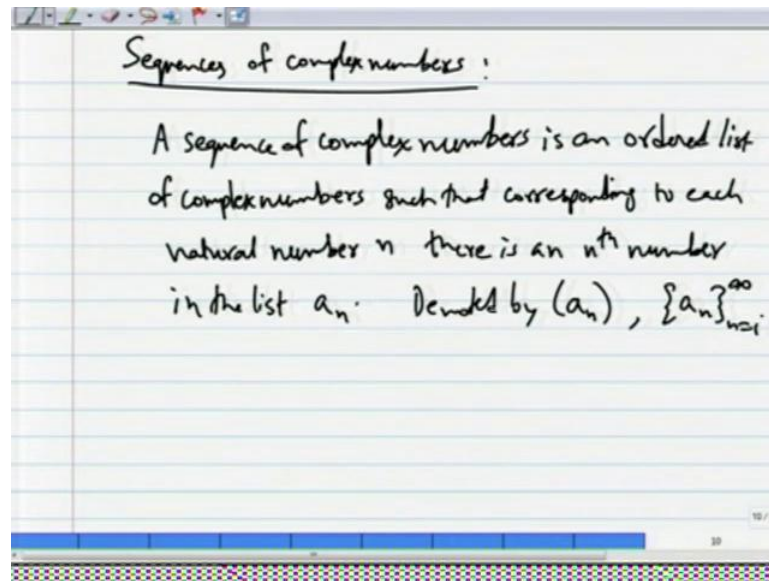 Sequences of complex numbers :
A sequence of complex numbers is an ordered list
of complex numbers such that corresponding to each
natural number n there is an nth number
in the list aₙ. Denoted by (aₙ), {aₙ}∞n=1
10/
10